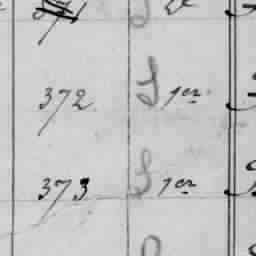 372. S 1er
373 S 1er